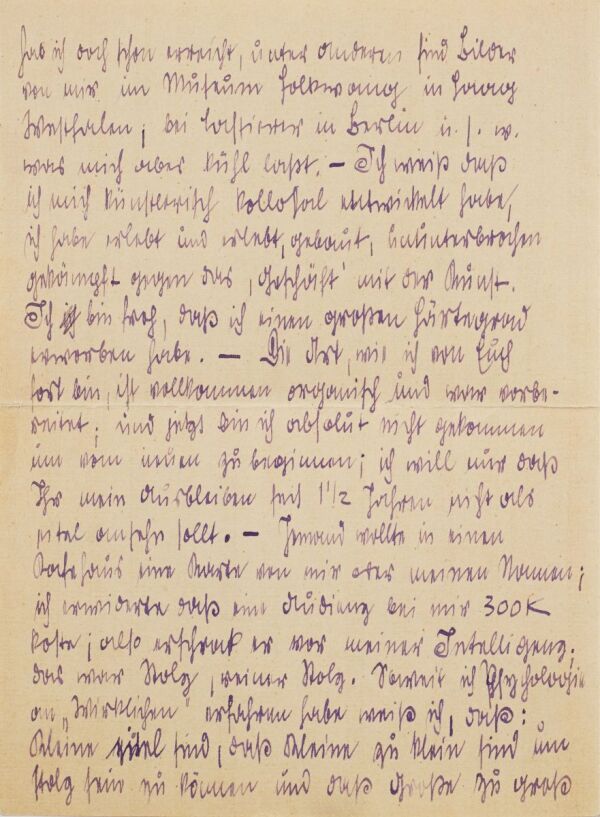 hab ich doch schon erreicht, unter anderen sind Bilder
von mir im Museum Folkwang in Haag
Westfalen; bei Cassierer in Berlin u. s. w.
was mich aber kühl laßt. – Ich weiß daß
ich mich künstlerisch kollosal entwickelt habe,
ich habe erlebt und erlebt, gebaut, ununterbrochen
gekämpft gegen das „Geschäft' mit der Kunst.
Ich bin froh, daß ich einen großen Härtegrad
erworben habe. – Die Art, wie ich von Euch
fort bin, ist vollkommen organisch und war vorbe-
reitet; und jetzt bin ich absolut nicht gekommen
um vom neuen zu beginnen; ich will nur daß
Ihr mein Ausbleiben seit 1½ Jahren nicht als
eitel ansehn sollt. – Jemand wollte in einen
Kafehaus eine Karte von mir oder meinen Nammen;
ich erwiderte daß eine Audienz bei mir 300K
koste; also erschrak er vor meiner Intelligenz;
das war Stolz, reiner Stolz. Soweit ich Psychologie
an „Wirklichen" erfahren habe weiß ich, daß:
Kleine eitel sind, daß Kleine zu klein sind um
stolz sein zu können und daß Große zu groß